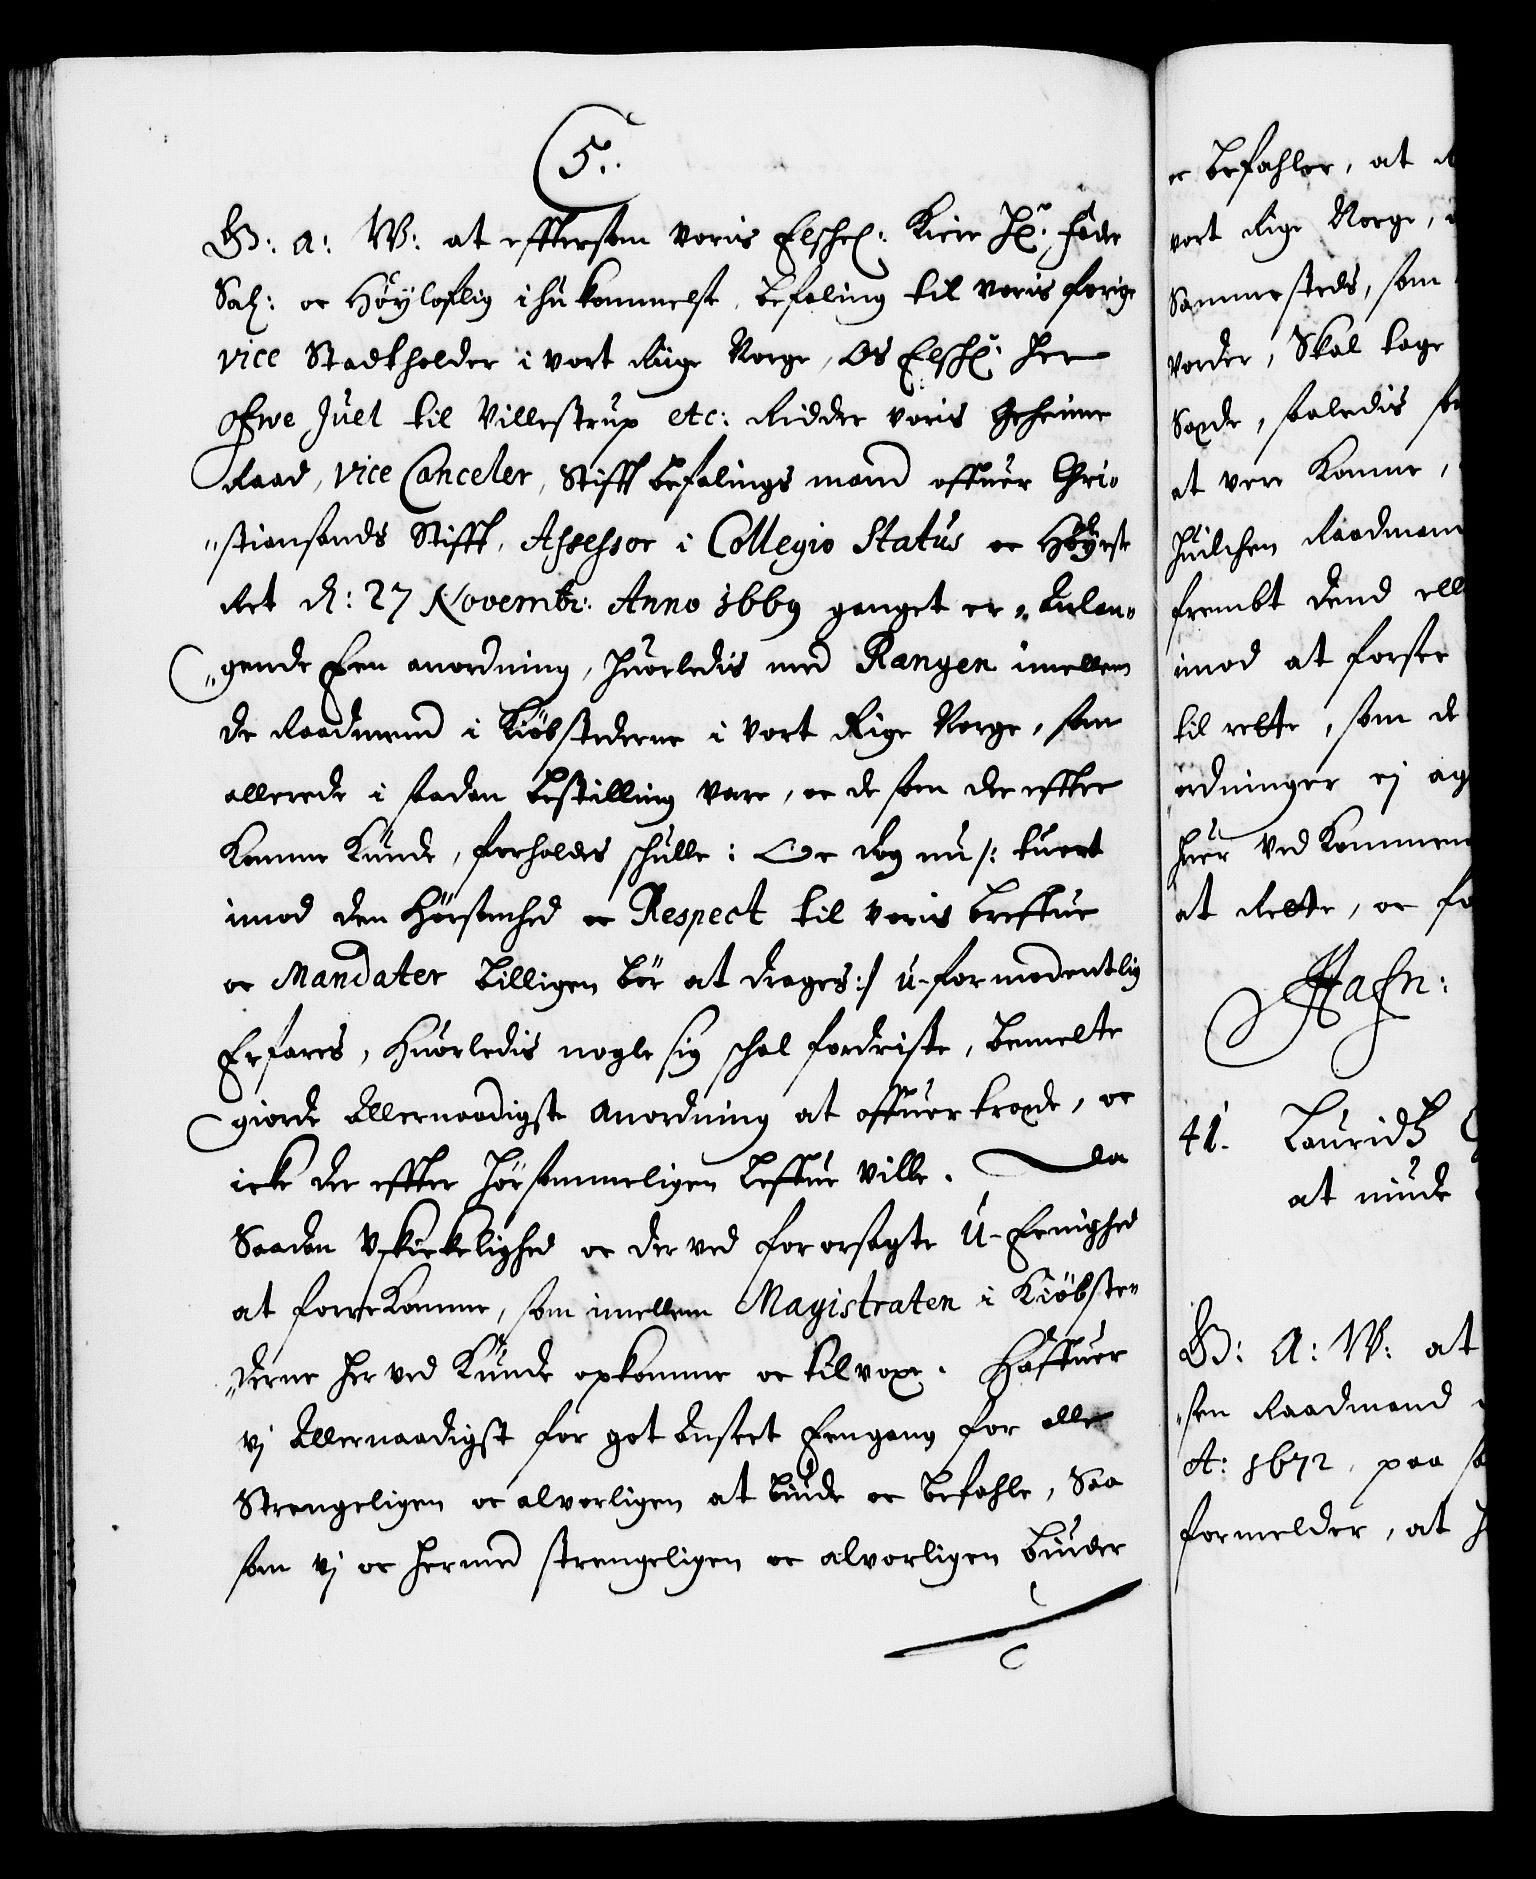 5.
G: a: W: at effterson voris Elschel: Kiere Hr: Fader
Sal: oc Høyloflig ihukommelse, befaling til voris forige
vice Stadtholder i vort Rige Norge, Os Elschl: Her
Ofwe Juel til Villestrup etc: Ridder voris Geheime
Raad, Vice Canceler, Stifft befalings mand offuer Chri-
"stiansands Stifft, Assessor i Collegio Status oc Høyeste
Ret d: 27 Novembr: Anno 1669 ganget er, Anlan-
"gende Een anordning, huorledis med Rangen imellem
de Raadmend i Kiöbstederne i vort Rige Norge, som
allerede i saadan bestilling vare, oc de som der effter
komme kunde, forholdes schulle: Oc dog nu /: tuert
imod den Hörsomhed oc Respect til voris breffue
oc Mandater billigen bör at drages :/ u-formodentlig
Erfares, huorledis nogle sig schal fordriste, bemelte
giorde Allernaadigste anordning at offuertræde, oc
icke der effter hörsommeligen leffue ville. Da
Saadan Uskickelighed oc der ved forarsagte U-Eenighed
at forrekomme, som imellem Magistraten i Kiöbste-
"derne her ved kunde opkomme oc tilvoxe. Haffuer
vj Allernaadigst for got Anseet Eengang for alle
Strengeligen oc alvorligen at biude oc befahle, Saa
som vj oc hermed strengeligen oc alvorligen biuder
oc befahler, at
vort Rige Norge,
Sammesteds, som
vorder, Skal tage
Sæde, saaledis
at vere komme,
Raadmand
frembt dend
imod at forsee
til rette, som de
ordninger ej
huer vedkommen
at Rette, oc
Hafn:
41. Lauridtz
at niude
G: A: W: at
"sen Raadmand
A: 1672, paa
formelder, at